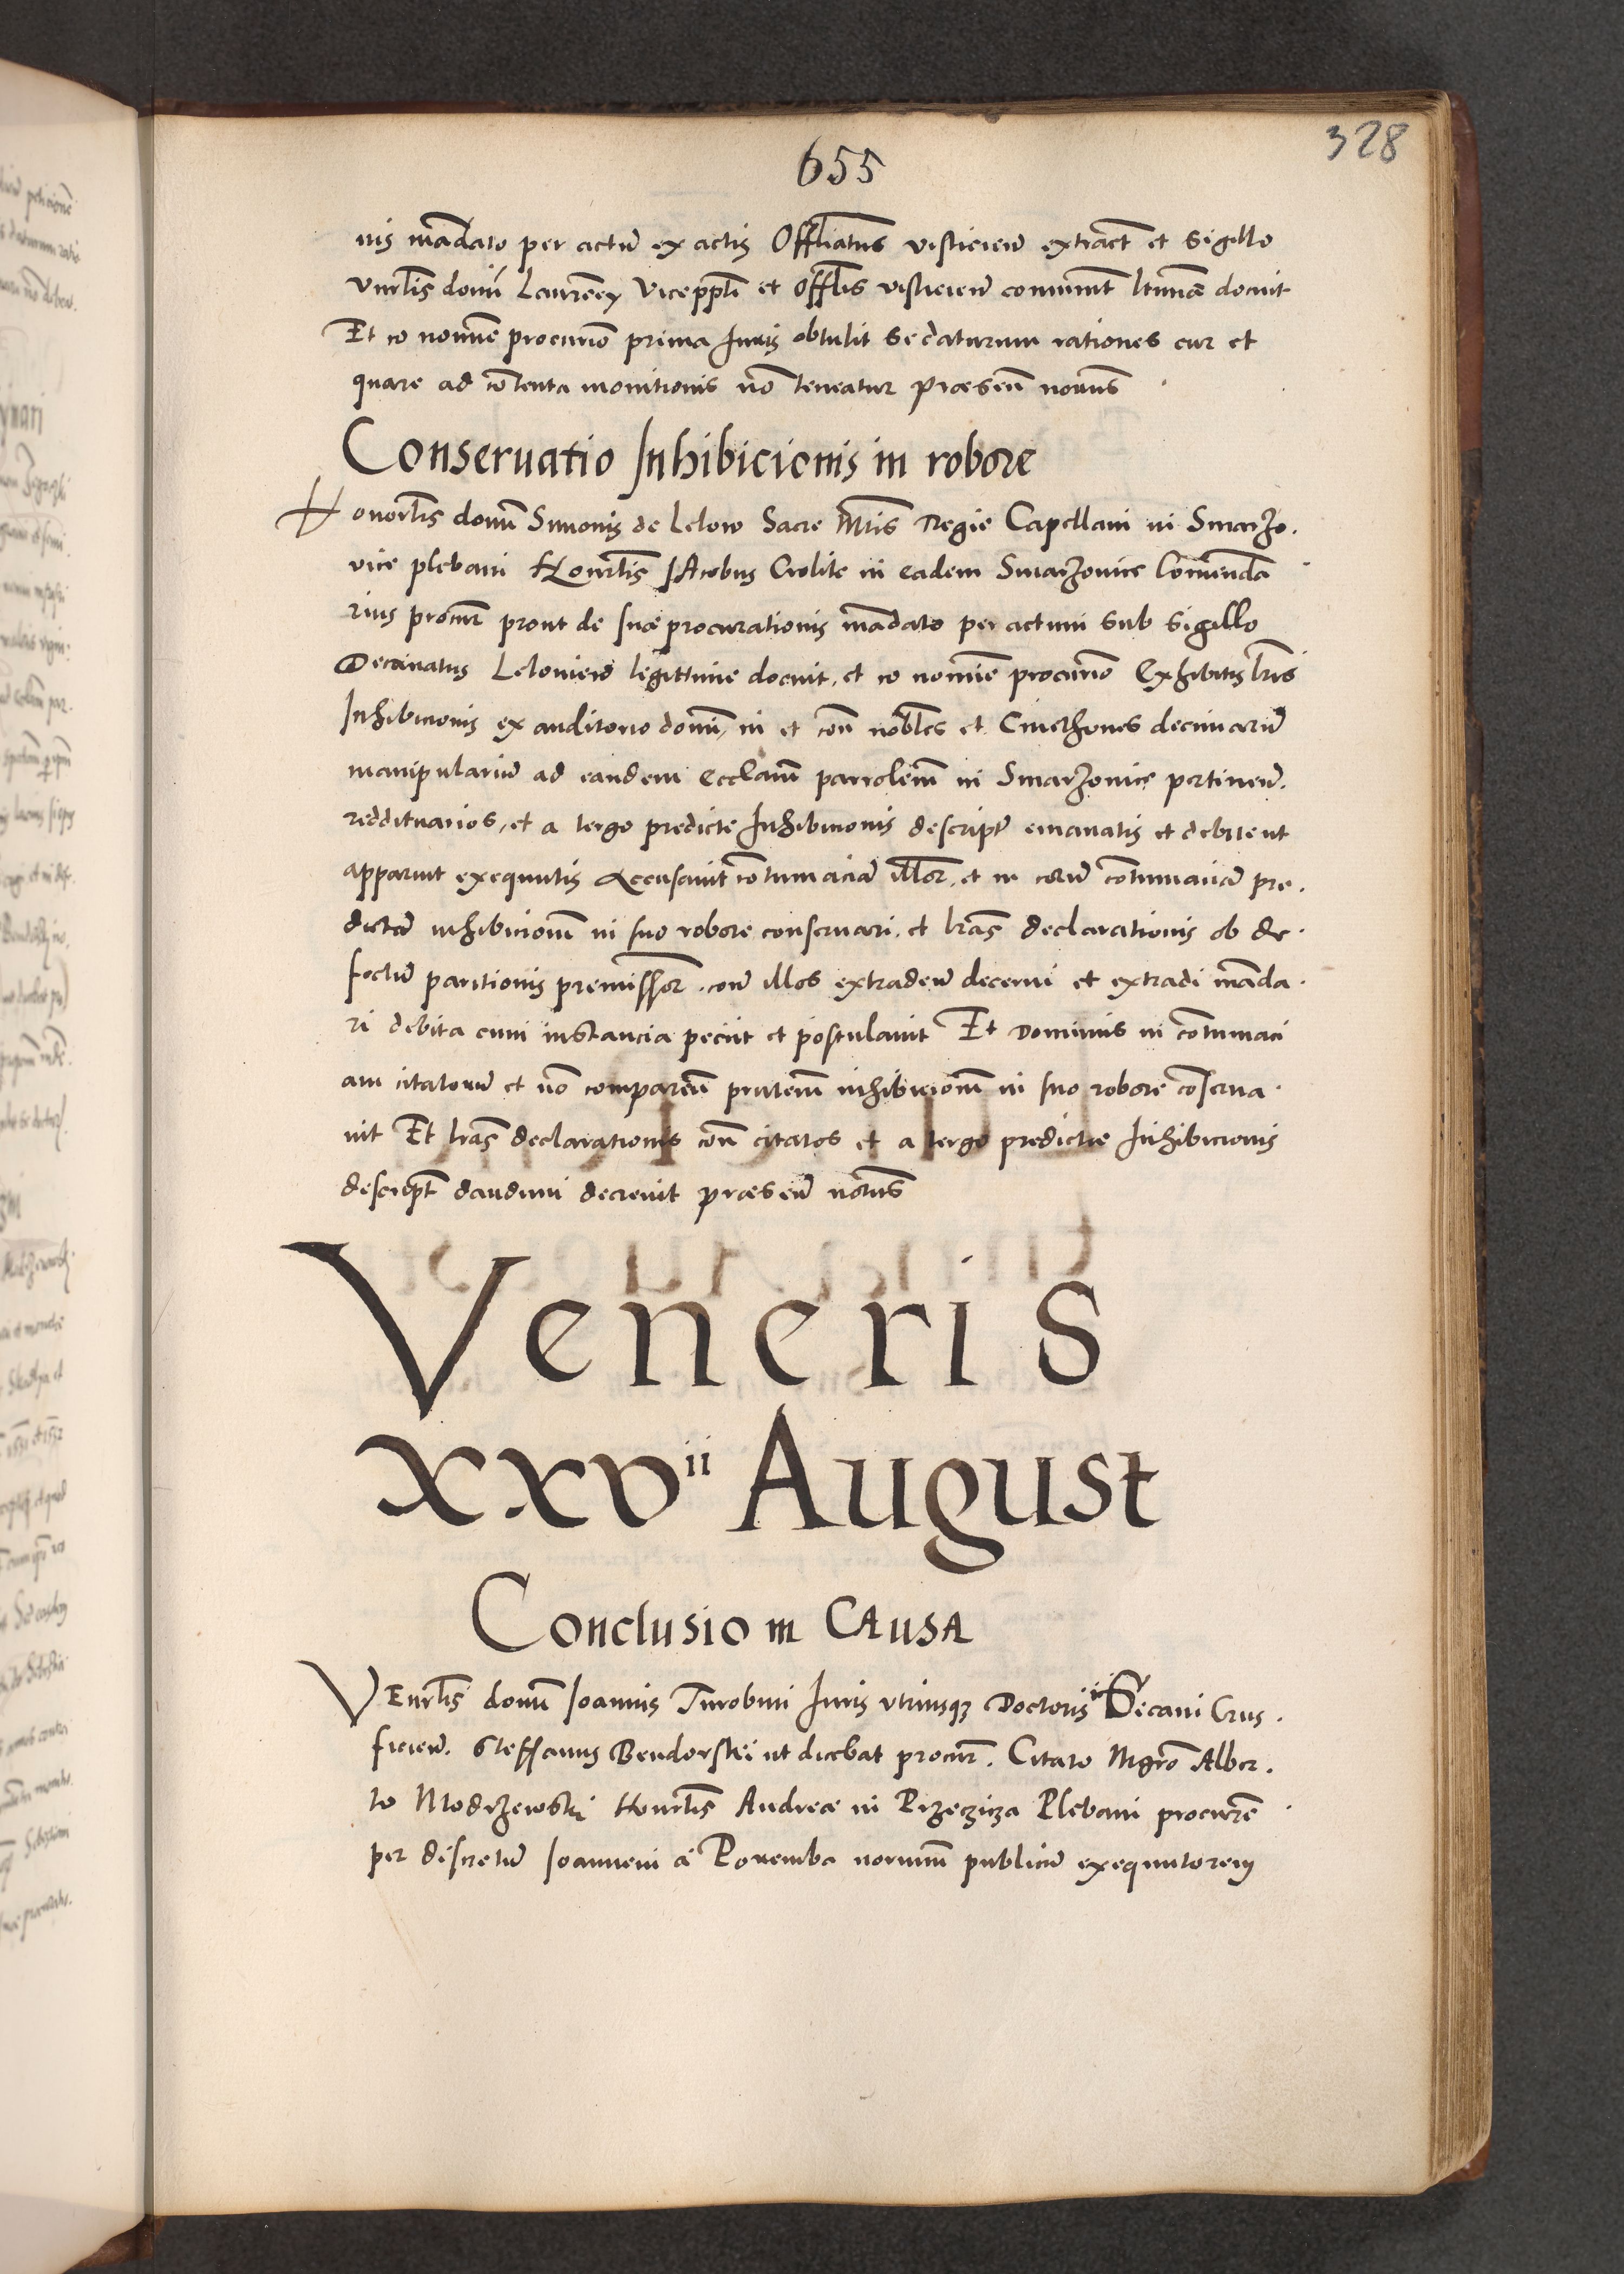 328
655
nis mādato per actū ex actis Offliatus visliciēn extract et sigillo
Vnrlis domī Laurēcy Vicepp̄ti et Offlis visliciēn com̄unit ltimāe docuit
Et eo nomine procurīo prima Iuris obtulit se daturum rationes cur et
quare ad cōtenta monitionis nō teneatur præsen̄ no͞rius
Conseruatio Inhibicionis in robore
Honorlis domī Simonis de Lelow Sacre Mtis Regie Capellani in Smarzo.
vice plebani Honrlis IAcobus in eadem Smarzovice Com̄enda
rius procur prout de suæ procurationis mādato per actum sub sigillo
Decanatus Lelovien̄ legittime docuit, et eo nomine procurīo Exhibitis lr̄is
Inhibicionis ex auditorio domī, in et con̄ nobles et Cmethones decimarū
manipulariū ad eandem Ecclām parrolem̄ in Smarzovice pertinen̄.
reddituarios, et a tergo predicte Inhibicionis descript emanatis et debite ut
apparuit exequutis Accusauit cōtumaciā illor, et in eorū cōtumaciā pre.
dictā inhibicionem̄ in suo robore conseruari. et lr̄as declarationis ob de.
fectū paritionis premissor. con̄ illos extraden̄ decerni et extradi māda.
ri debita cum instancia peciit et postulauit Et Dominus in cōtumaci
am citatorū et nō comparen̄ prætem̄ inhibicionem̄ in suo robore cōserua.
uit Et lr̄as declarationis con̄ citatos et a tergo predicte Inhibicionis
descript dandum decreuit præsen̄ no͞rius
Veneris
xxvii August
Conclusio in CAusA
VEnrlis domī Ioannis Turobini Iuris vtriusq3 Doctoris Decani Crus.
ficien̄. Steffanus Bendorskï ut dicebat procur̄. Citato Mgr̄o Alber.
to Modrzewski Honrlis Andreæ in Przeczicza Plebani procur̄e
per discretū Ioannem à Poremba no͞rium publicū exequutorem